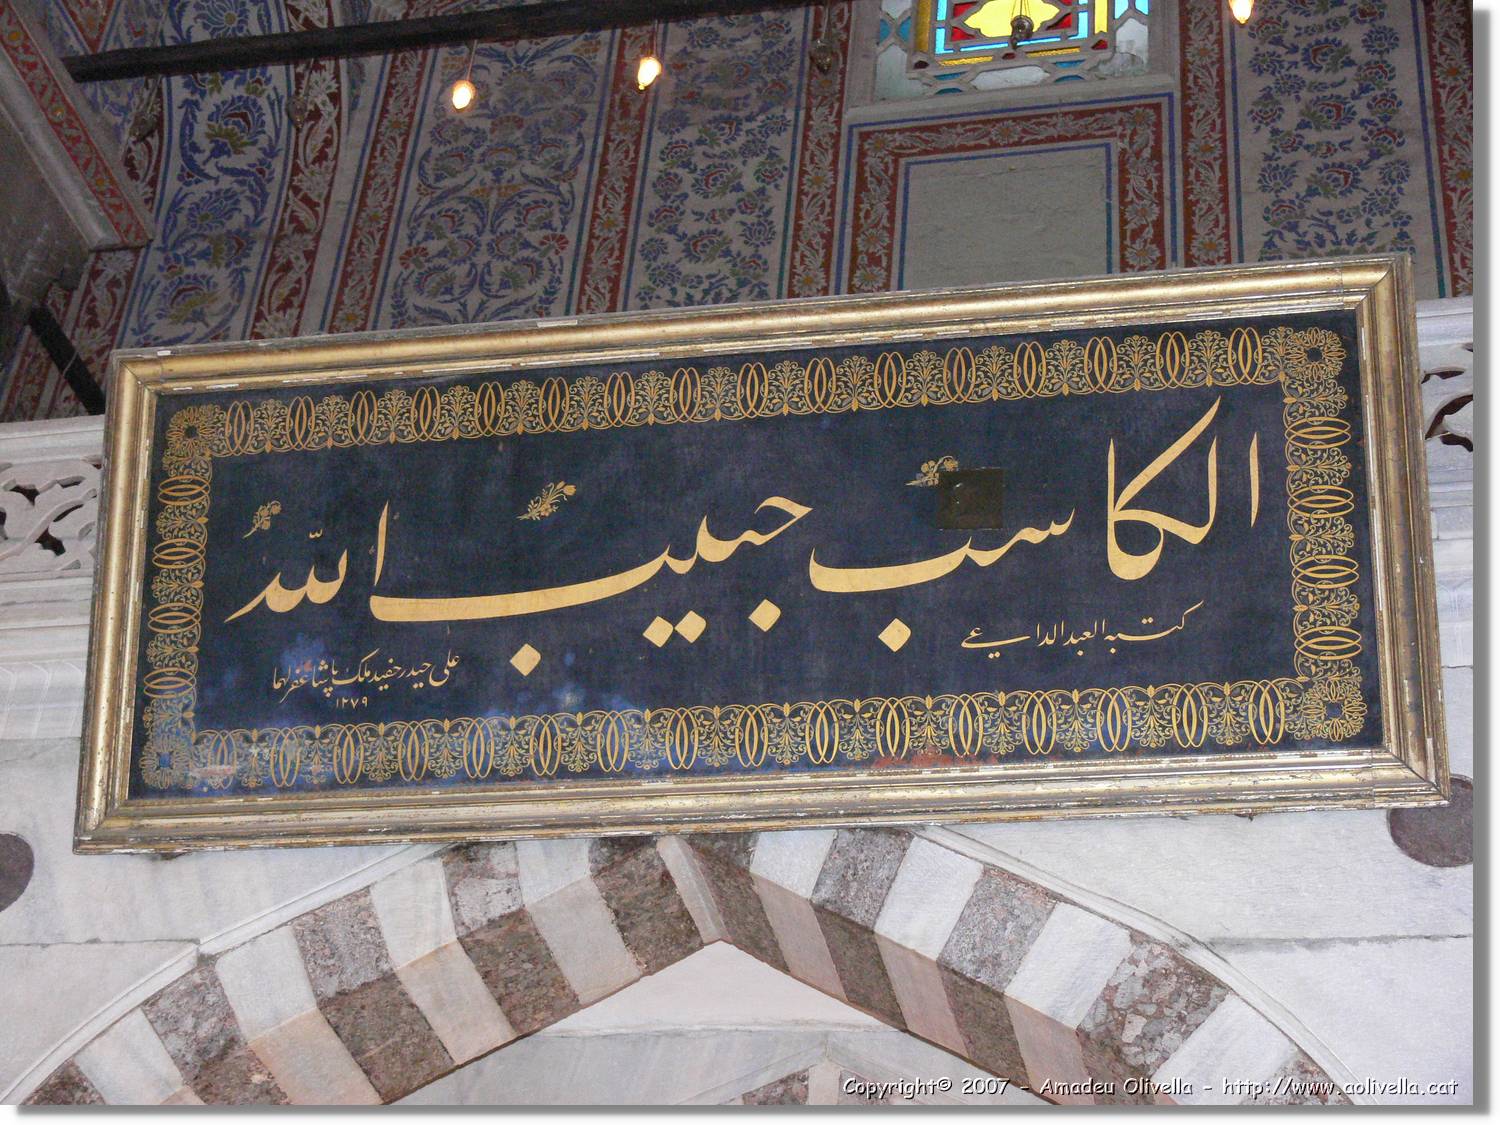 الكاسب حبيب الله
كتبه العبد الداعي
علي حيدر حفيد ملك پاشا غفر لهما
١٢٧٩
Copyright© 2007 - Amadeu Olivella - http://www.aolivella.cat